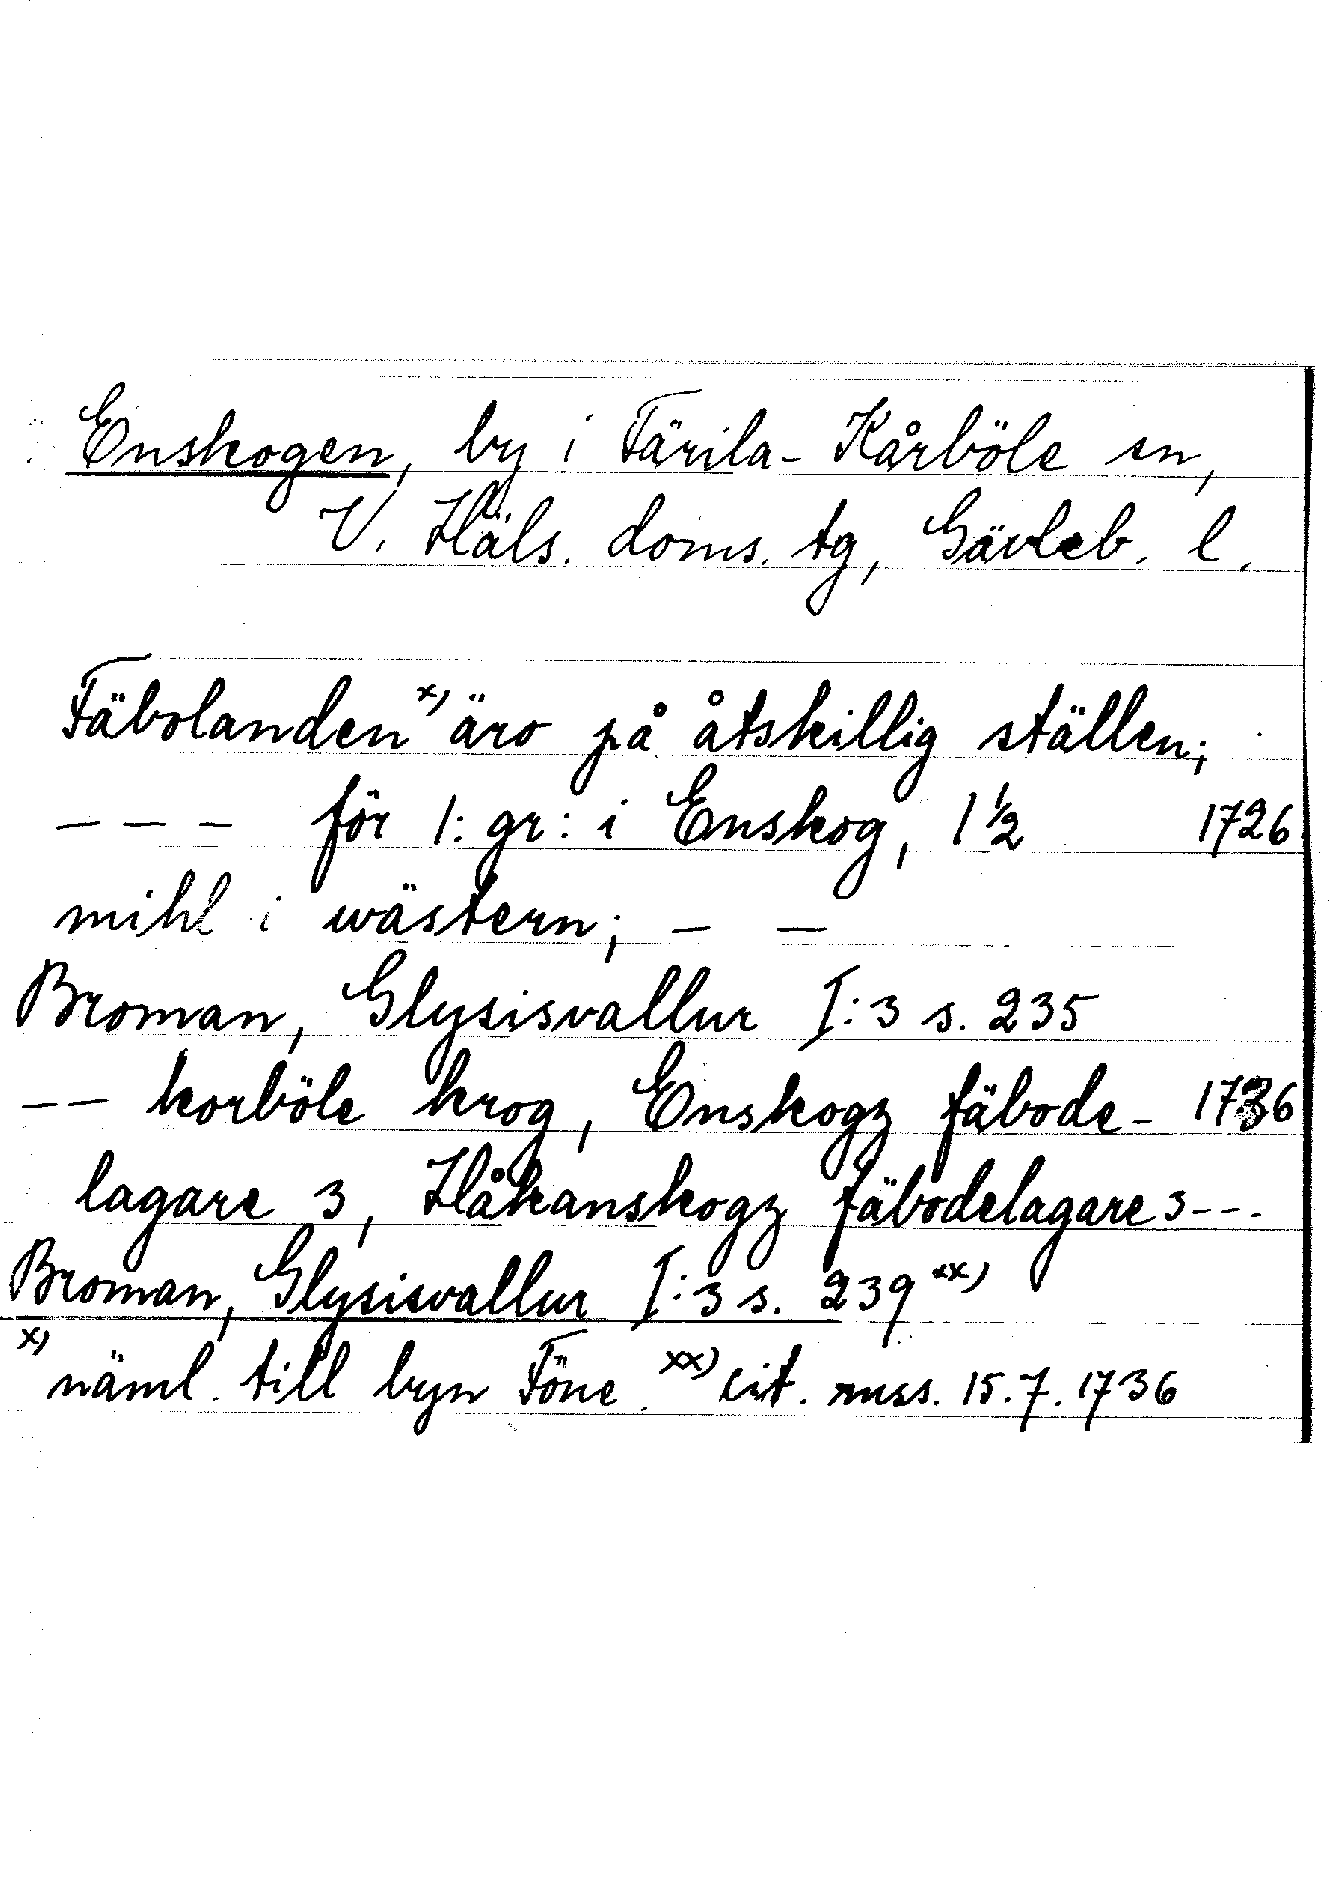 Enskogen, by i Färila-Kårböle sn,
V. Häls. doms. tg, Gävleb. l.
Fäbolanden x) äro på åtskillig ställen;
- - - för 1: gr: i Enskog, 1 ½ 1726
mihl i wästern; - -
Broman, Glysisvallur I:3 s. 235
-- korböle krog, Enskogz fäbode- 1736
lagare 3, Håkanskogz fäbodelagare 3---
Broman, Glysisvallur I:3 s. 239 xx)
x) näml. till byn Föne. xx) cit. mss. 15.7.1736